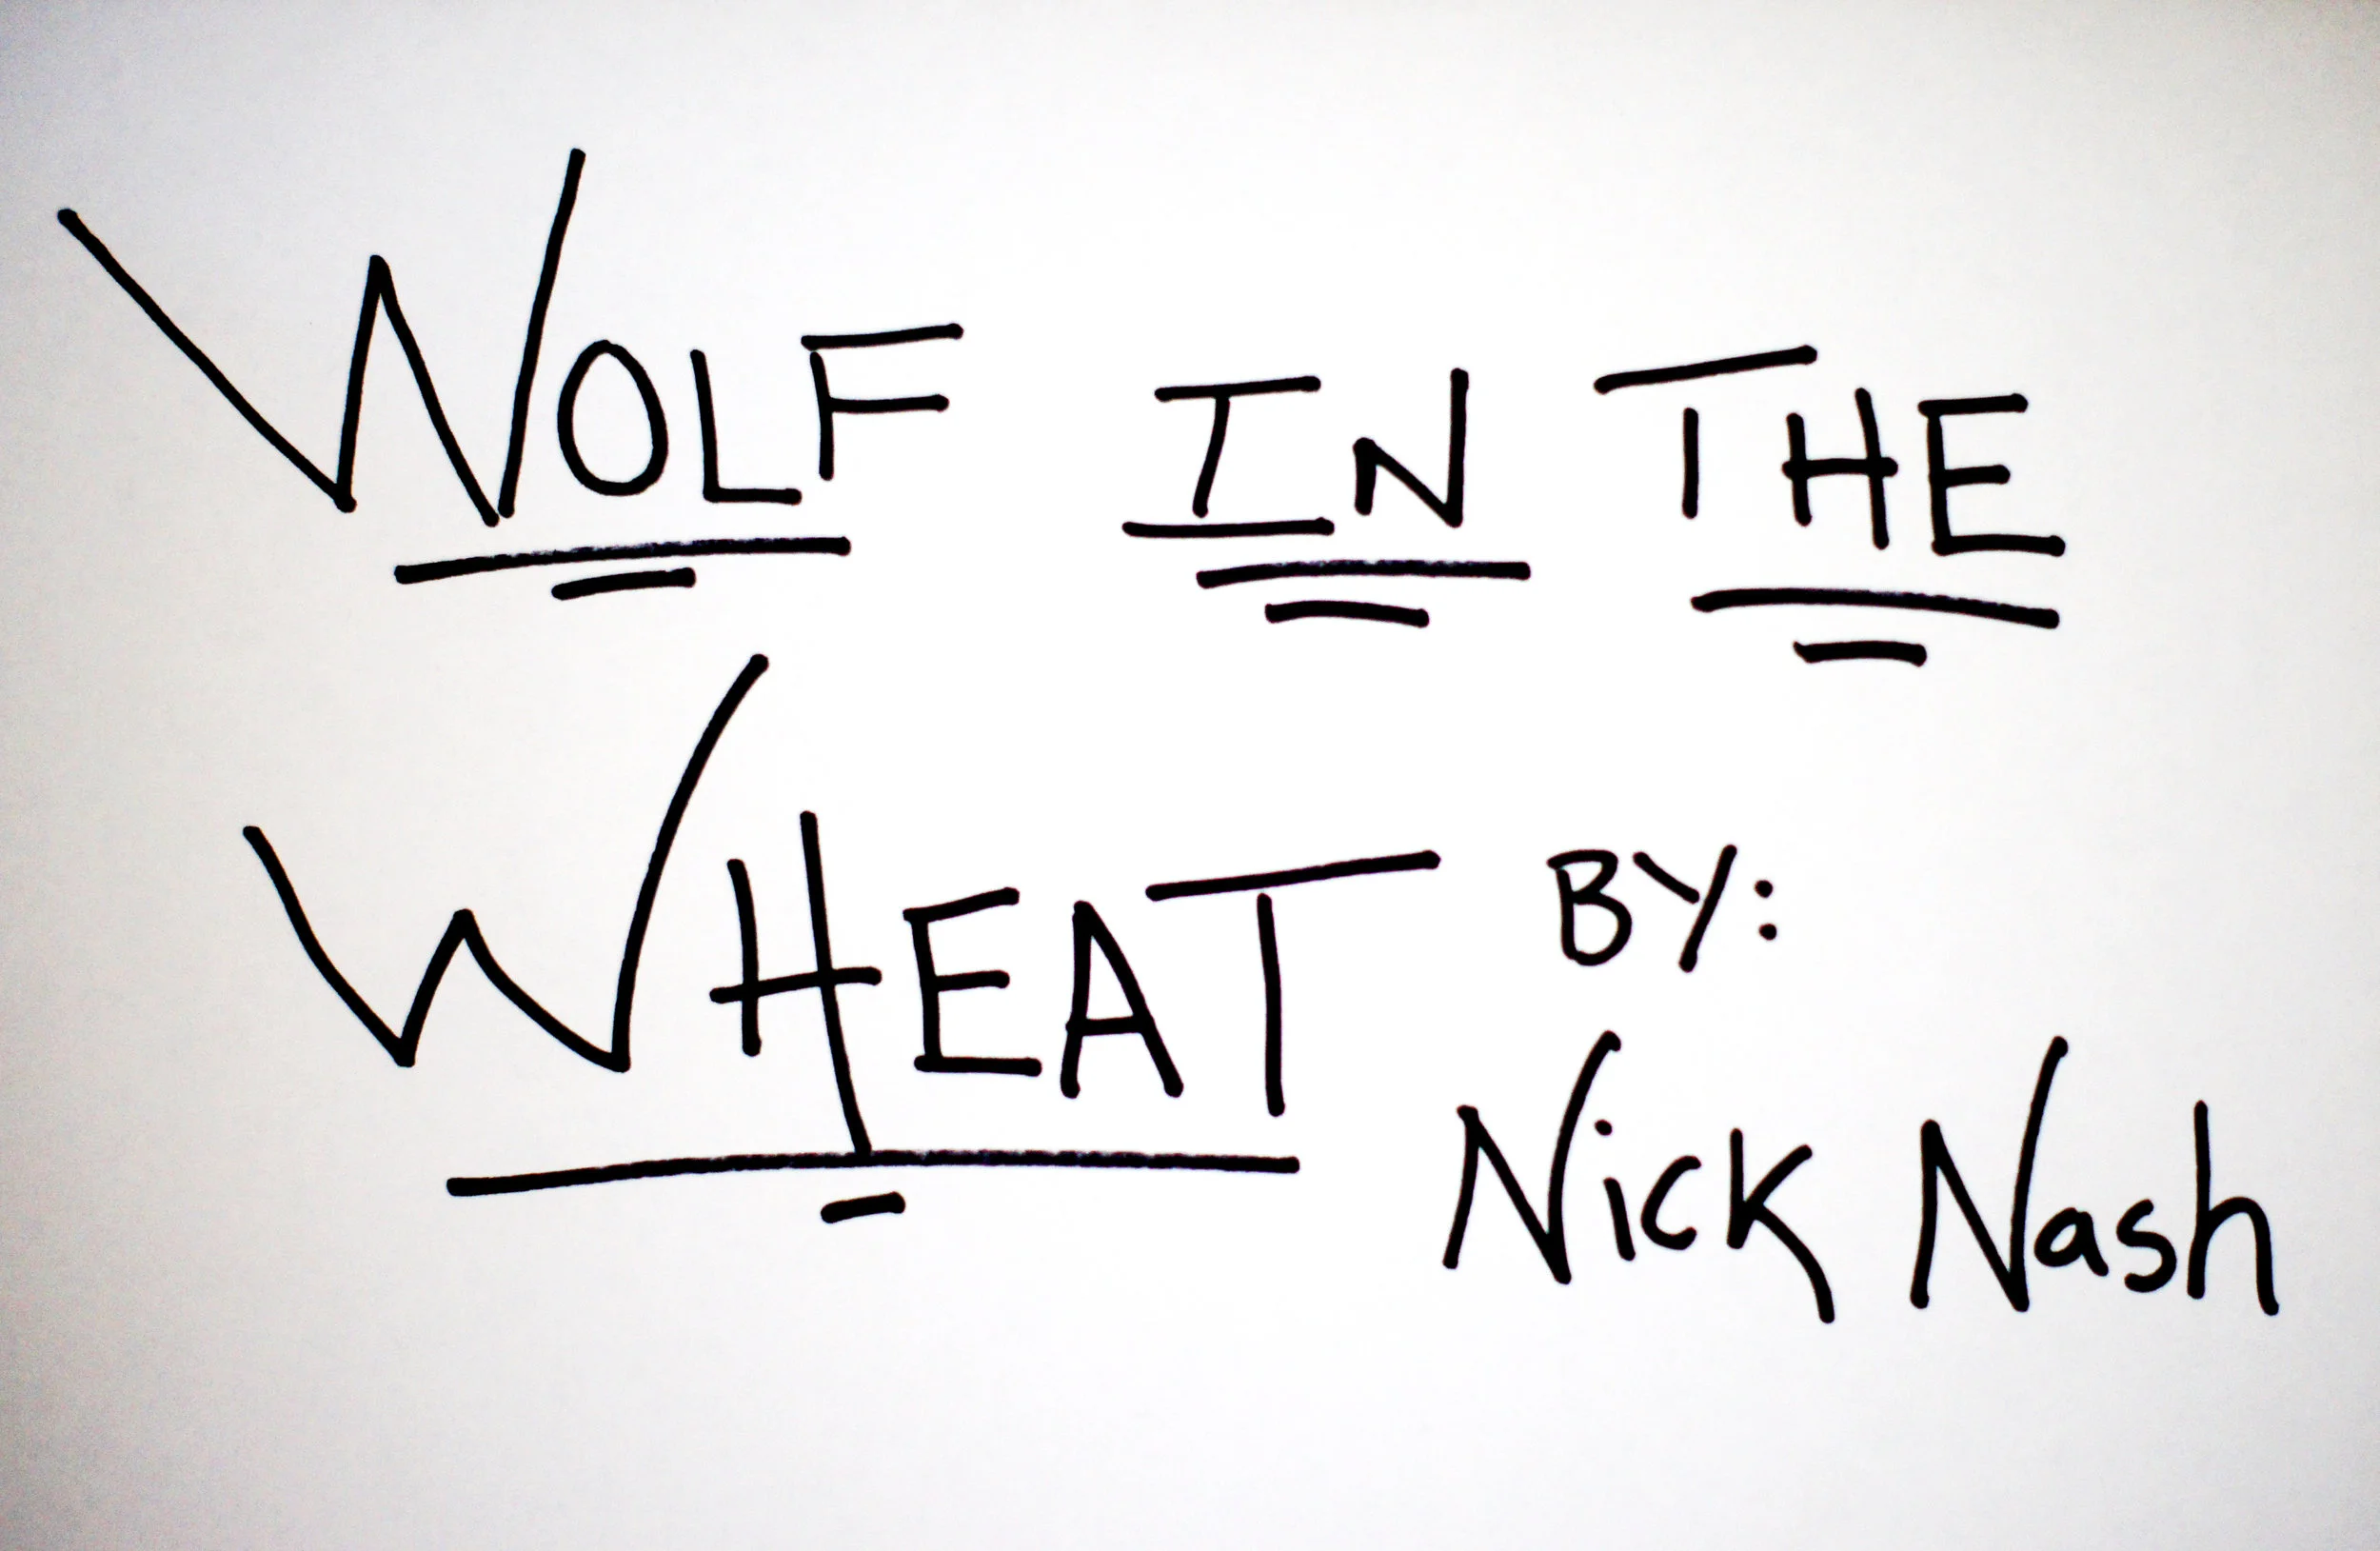 WOLF IN THE
WHEAT BY:
Nick Nash